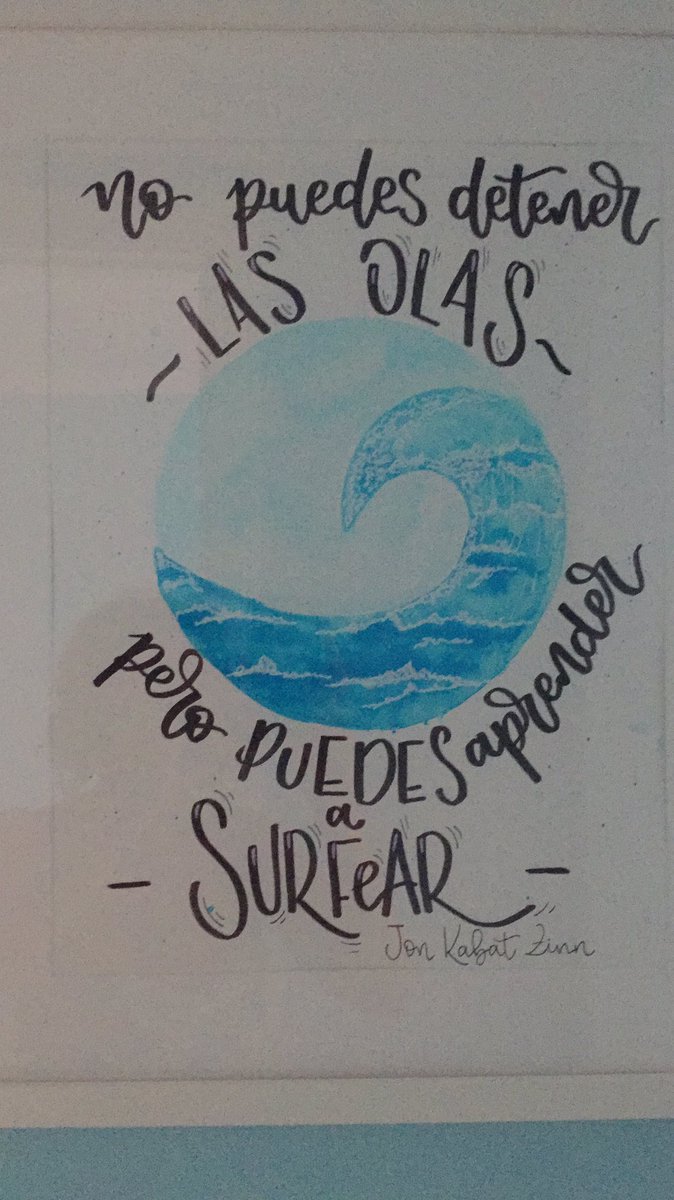 no puedes detener
LAS OLAS
pero PUEDES aprender
a
SURFeAR
Jon Kabat Zinn